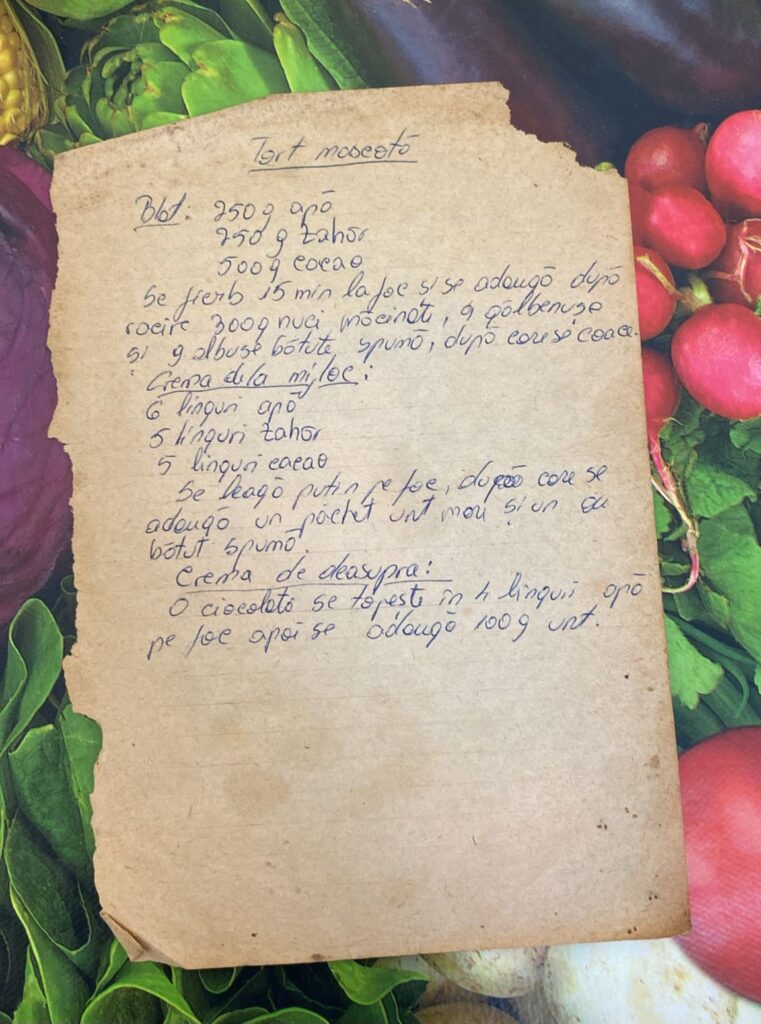 Tort mascotă
Blat: 250g apă
250 g zahăr
500g cacao
Se fierb 15 min la foc și se adaugă după
racire 300g nuci măcinate, 9 gălbenușe
și 9 albușe bătute spumă, după care se coace.
Crema de la mijloc:
6 linguri apă
5 linguri zahăr
5 linguri cacao
Se leagă puțin pe foc, după care se
adaugă un pachet unt mare și un ou
bătut spumă.
Crema de deasupra:
O ciocolată se topește în 4 linguri apă
pe foc apoi se adaugă 100g unt.